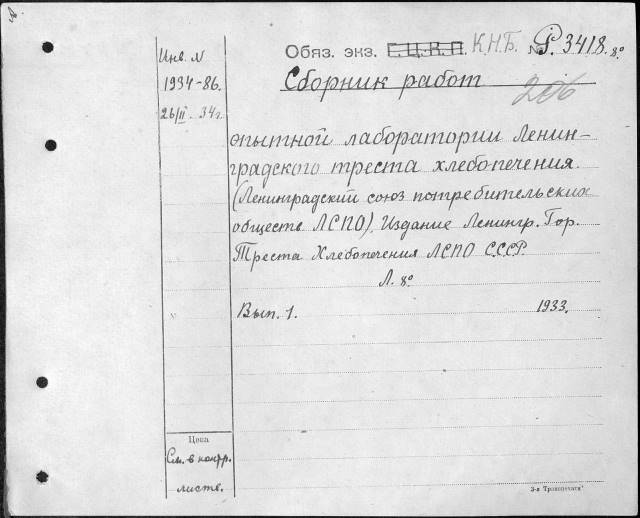 Инв. N
1934-86.
26/II. 34 г.
Обяз. экз. Г.Ц.К.П. К.Н.Б. № P. 3418. 8º
Сборник работ
206
опытной лаборатории Ленин-
градского треста хлебопечения.
(Ленинградский союз потребительских
обществ ЛСПО). Издание Ленингр. Гор.
Треста Хлебопечения ЛСПО СССР.
Л. 8º
Вып. 1. 1933.
Цена
См. в контр.
листе.
3-я Транспечати